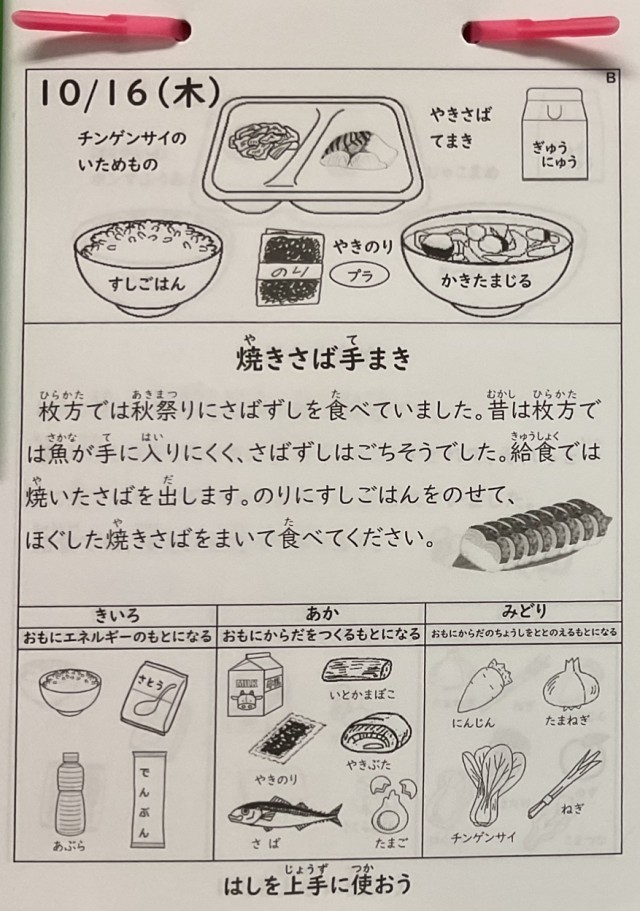 B
10/16(木)
チンゲンサイの
いためもの
やきさば
てまき
ぎゅう
にゅう
すしごはん
のり
やきのり
プラ
かきたまじる
焼きさば手まき
枚方では秋祭りにさばずしを食べていました。昔は枚方で
は魚が手に入りにくく、さばずしはごちそうでした。給食では
焼いたさばを出します。のりにすしごはんをのせて、
ほぐした焼きさばをまいて食べてください。
きいろ
おもにエネルギーのもとになる
さとう
あぶら
でんぷん
あか
おもにからだをつくるもとになる
MILK
いとかまぼこ
やきのり
やきぶた
さば
たまご
みどり
おもにからだのちょうしをととのえるもとになる
にんじん
たまねぎ
チンゲンサイ
ねぎ
はしを上手に使おう